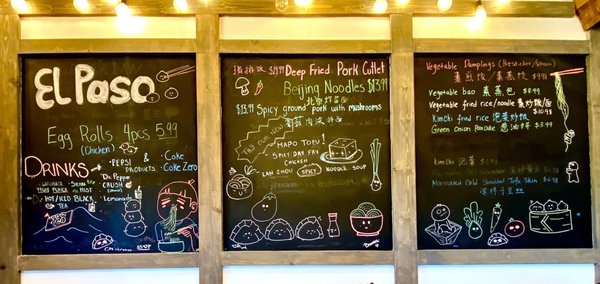 El Paso
Egg Rolls 4pcs 5.99
(Chicken)
DRINKS
PEPSI PRODUCTS
Coke
Coke Zero
Dr. Pepper
CRUSH
Lemonade
HOT/ICED BLACK TEA
Deep Fried Pork Cutlet
Beijing Noodles $13.99
北京炸酱面
$13.99 Spicy ground pork with mushrooms
TRY OUR NEW
MAPO TOFU
SPICY DRY FRY CHICKEN
LAN ZHOU SPICY NOODLE SOUP
Vegetable Dumplings (Potsticker/Steam)
素煎饺/素蒸饺
Vegetable bao 素蒸包 $8.99
Vegetable fried rice/noodle 素炒饭/面
$10.99
Kimchi fried rice 泡菜炒饭
Green Onion Pancake 葱油饼 $3.99
Kimchi 泡菜
Marinated Cold Shredded Tofu Skin $6.99